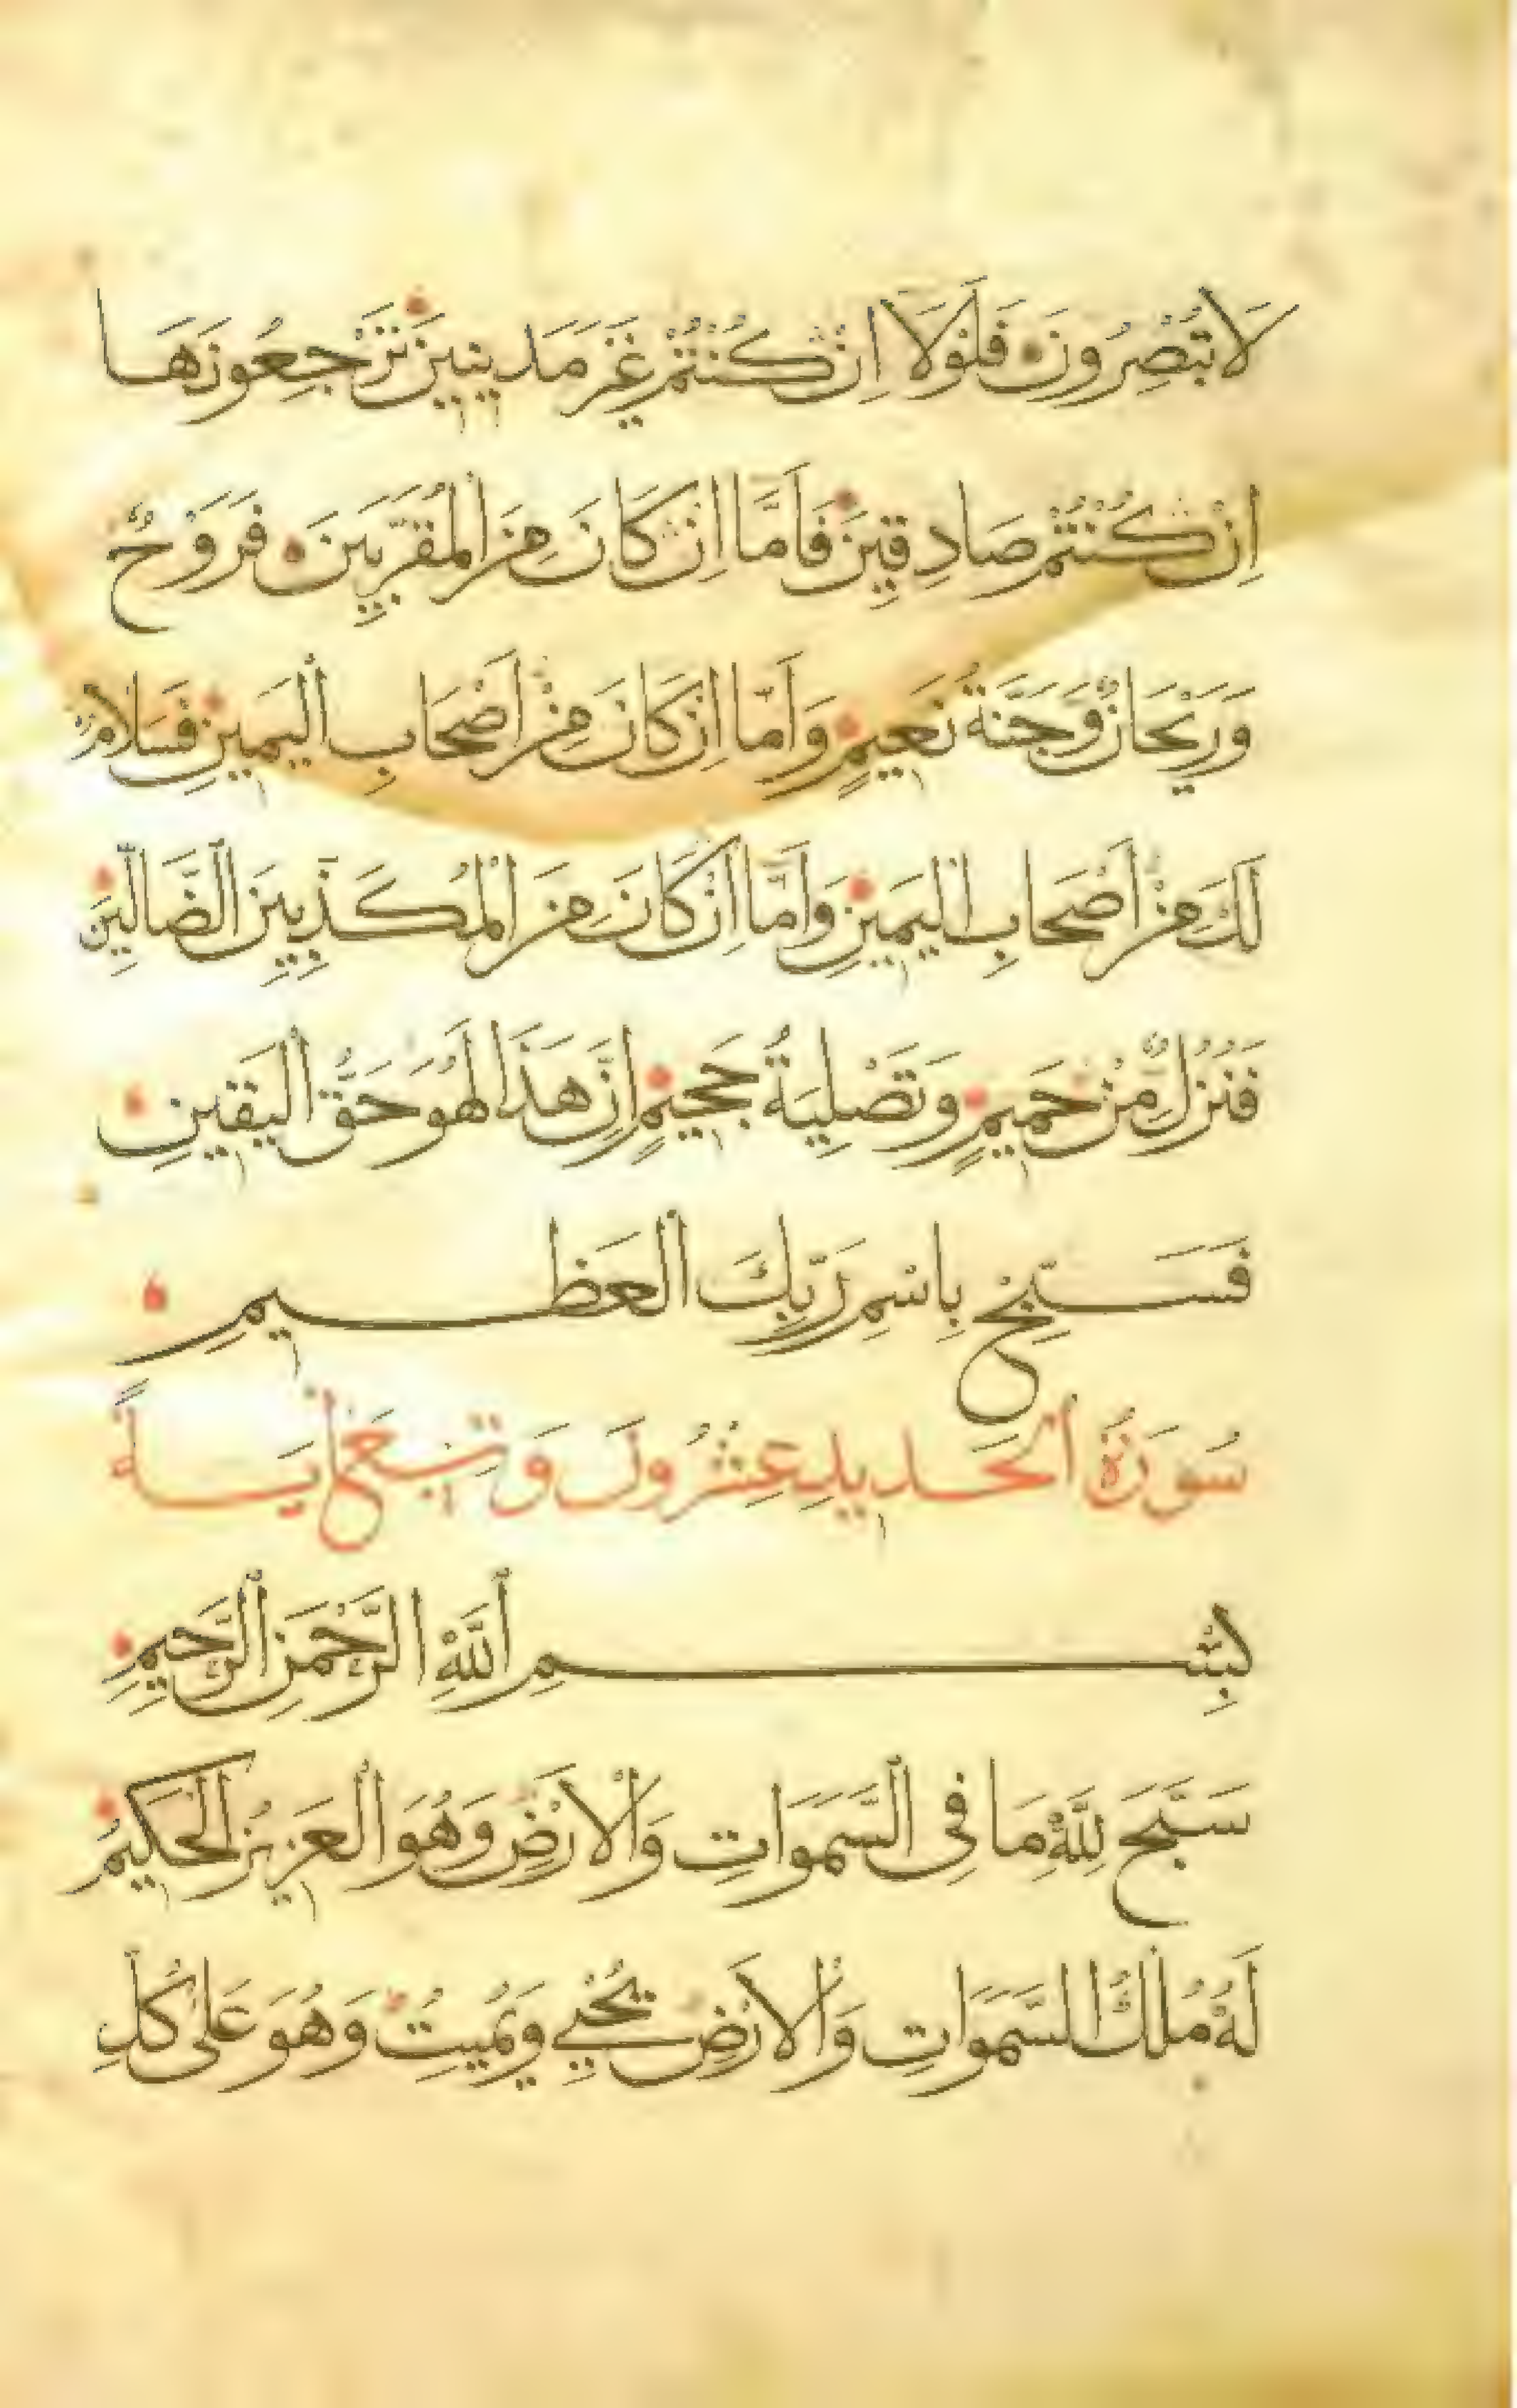 لَا تُبْصِرُونَ فَلَوْلَا اِنْ كُنْتُمْ غَيْرَ مَدِينِينَ تَرْجِعُونَهَا
اِنْ كُنْتُمْ صَادِقِينَ فَاَمَّا اِنْ كَانَ مِنَ الْمُقَرَّبِينَ فَرَوْحٌ
وَرَيْحَانٌ وَجَنَّةُ نَعِيمٍ وَاَمَّا اِنْ كَانَ مِنْ اَصْحَابِ الْيَمِينِ فَسَلَامٌ
لَكَ مِنْ اَصْحَابِ الْيَمِينِ وَاَمَّا اِنْ كَانَ مِنَ الْمُكَذِّبِينَ الضَّالِّينَ
فَنُزُلٌ مِنْ حَمِيمٍ وَتَصْلِيَةُ جَحِيمٍ اِنَّ هَذَا لَهُوَ حَقُّ الْيَقِينِ
فَسَبِّحْ بِاسْمِ رَبِّكَ الْعَظِيمِ
سُورَةُ الْحَدِيدِ عِشْرُونَ وَتِسْعُ اٰيَاةً
بِسْمِ اللَّهِ الرَّحْمَنِ الرَّحِيمِ
سَبَّحَ لِلَّهِ مَا فِي السَّمَوَاتِ وَالْاَرْضِ وَهُوَ الْعَزِيزُ الْحَكِيمُ
لَهُ مُلْكُ السَّمَوَاتِ وَالْاَرْضِ يُحْيِي وَيُمِيتُ وَهُوَ عَلَى كُلِّ